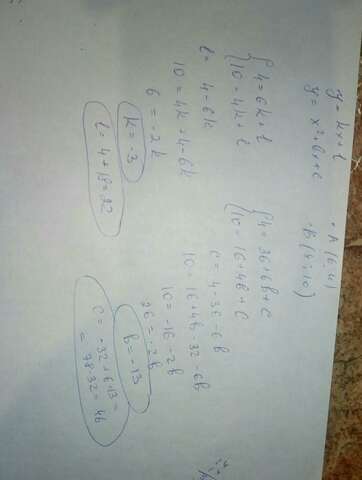 y = kx + l
y = x² + bx + c
• A (6;4)
• B (4;10)
{ 4 = 6k + l
10 = 4k + l
l = 4 - 6k
10 = 4k + 4 - 6k
6 = -2k
k = -3
l = 4 + 18 = 22
{ 4 = 36 + 6b + c
10 = 16 + 4b + c
c = 4 - 36 - 6b
10 = 16 + 4b - 32 - 6b
10 = -16 - 2b
26 = -2b
b = -13
c = -32 + 6·13 =
= 78 - 32 = 46